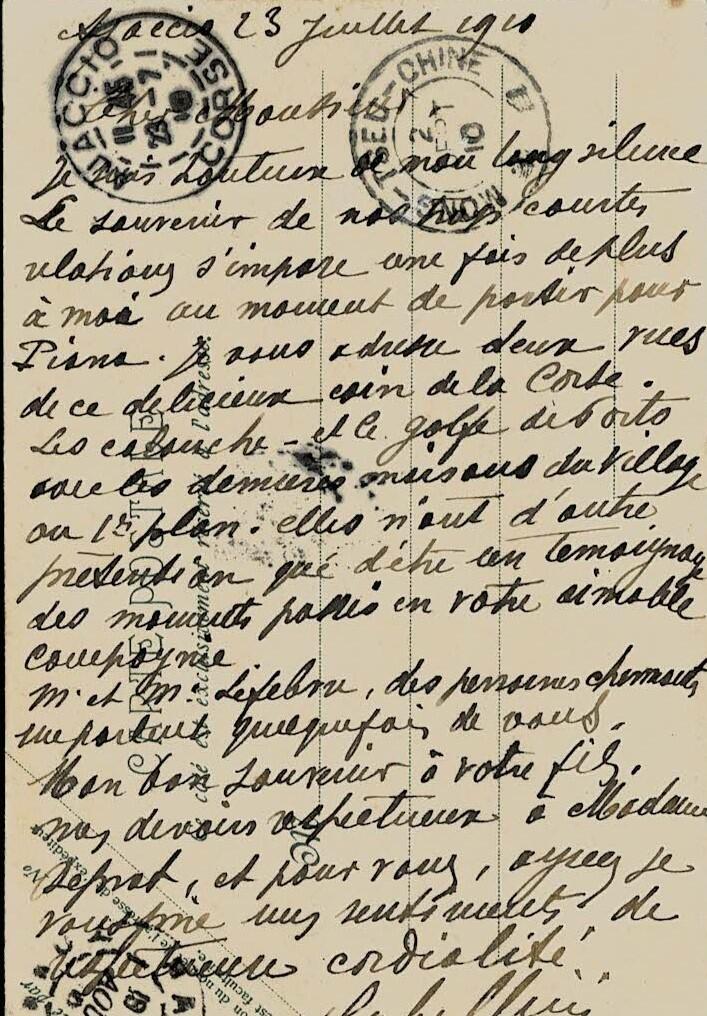 Ajaccio 23 Juillet 1910
Cher Monsieur
Je suis honteux de mon long silence
Le souvenir de nos trop courtes
relations s'impose une fois de plus
à moi au moment de partir pour
Piana. Je vous adresse deux vues
de ce delicieux coin de la Corse.
Les calanche - et le golfe de Porto
avec les dernieres maisons du village
au 1er plan. elles n'ont d'autre
prétention que d'être un temoignage
des moments passés en votre aimable
compagnie
Mr et Me Lefebvre, des personnes charmantes
me parlent quequefois de vous.
Mon bon souvenir à votre fils,
mes devoirs respectueux à Madame
Deprat, et pour vous, ayez je
vous prie mes sentiments de
respectueuse cordialité.
AJACCIO
CORSE
11 45
23 - 7
10
MONG-TSEU-CHINE
2
SEPT
10
CARTE POSTALE
Ce côté est exclusivement réservé à l'adresse.
M